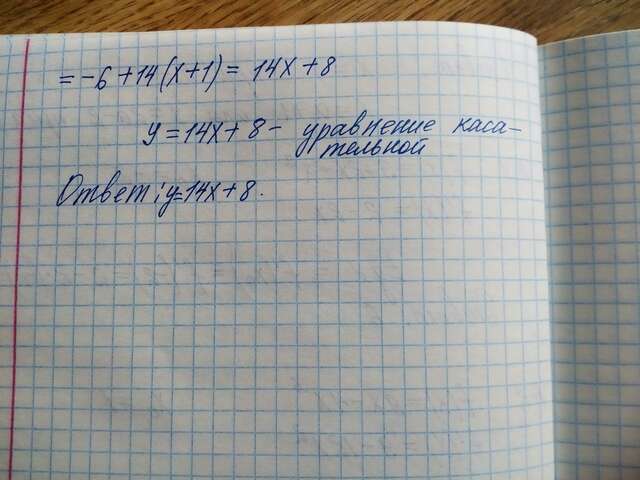 = -6 + 14(x+1) = 14x + 8
y = 14x + 8 - уравнение каса-
тельной
Ответ: y=14x+8.